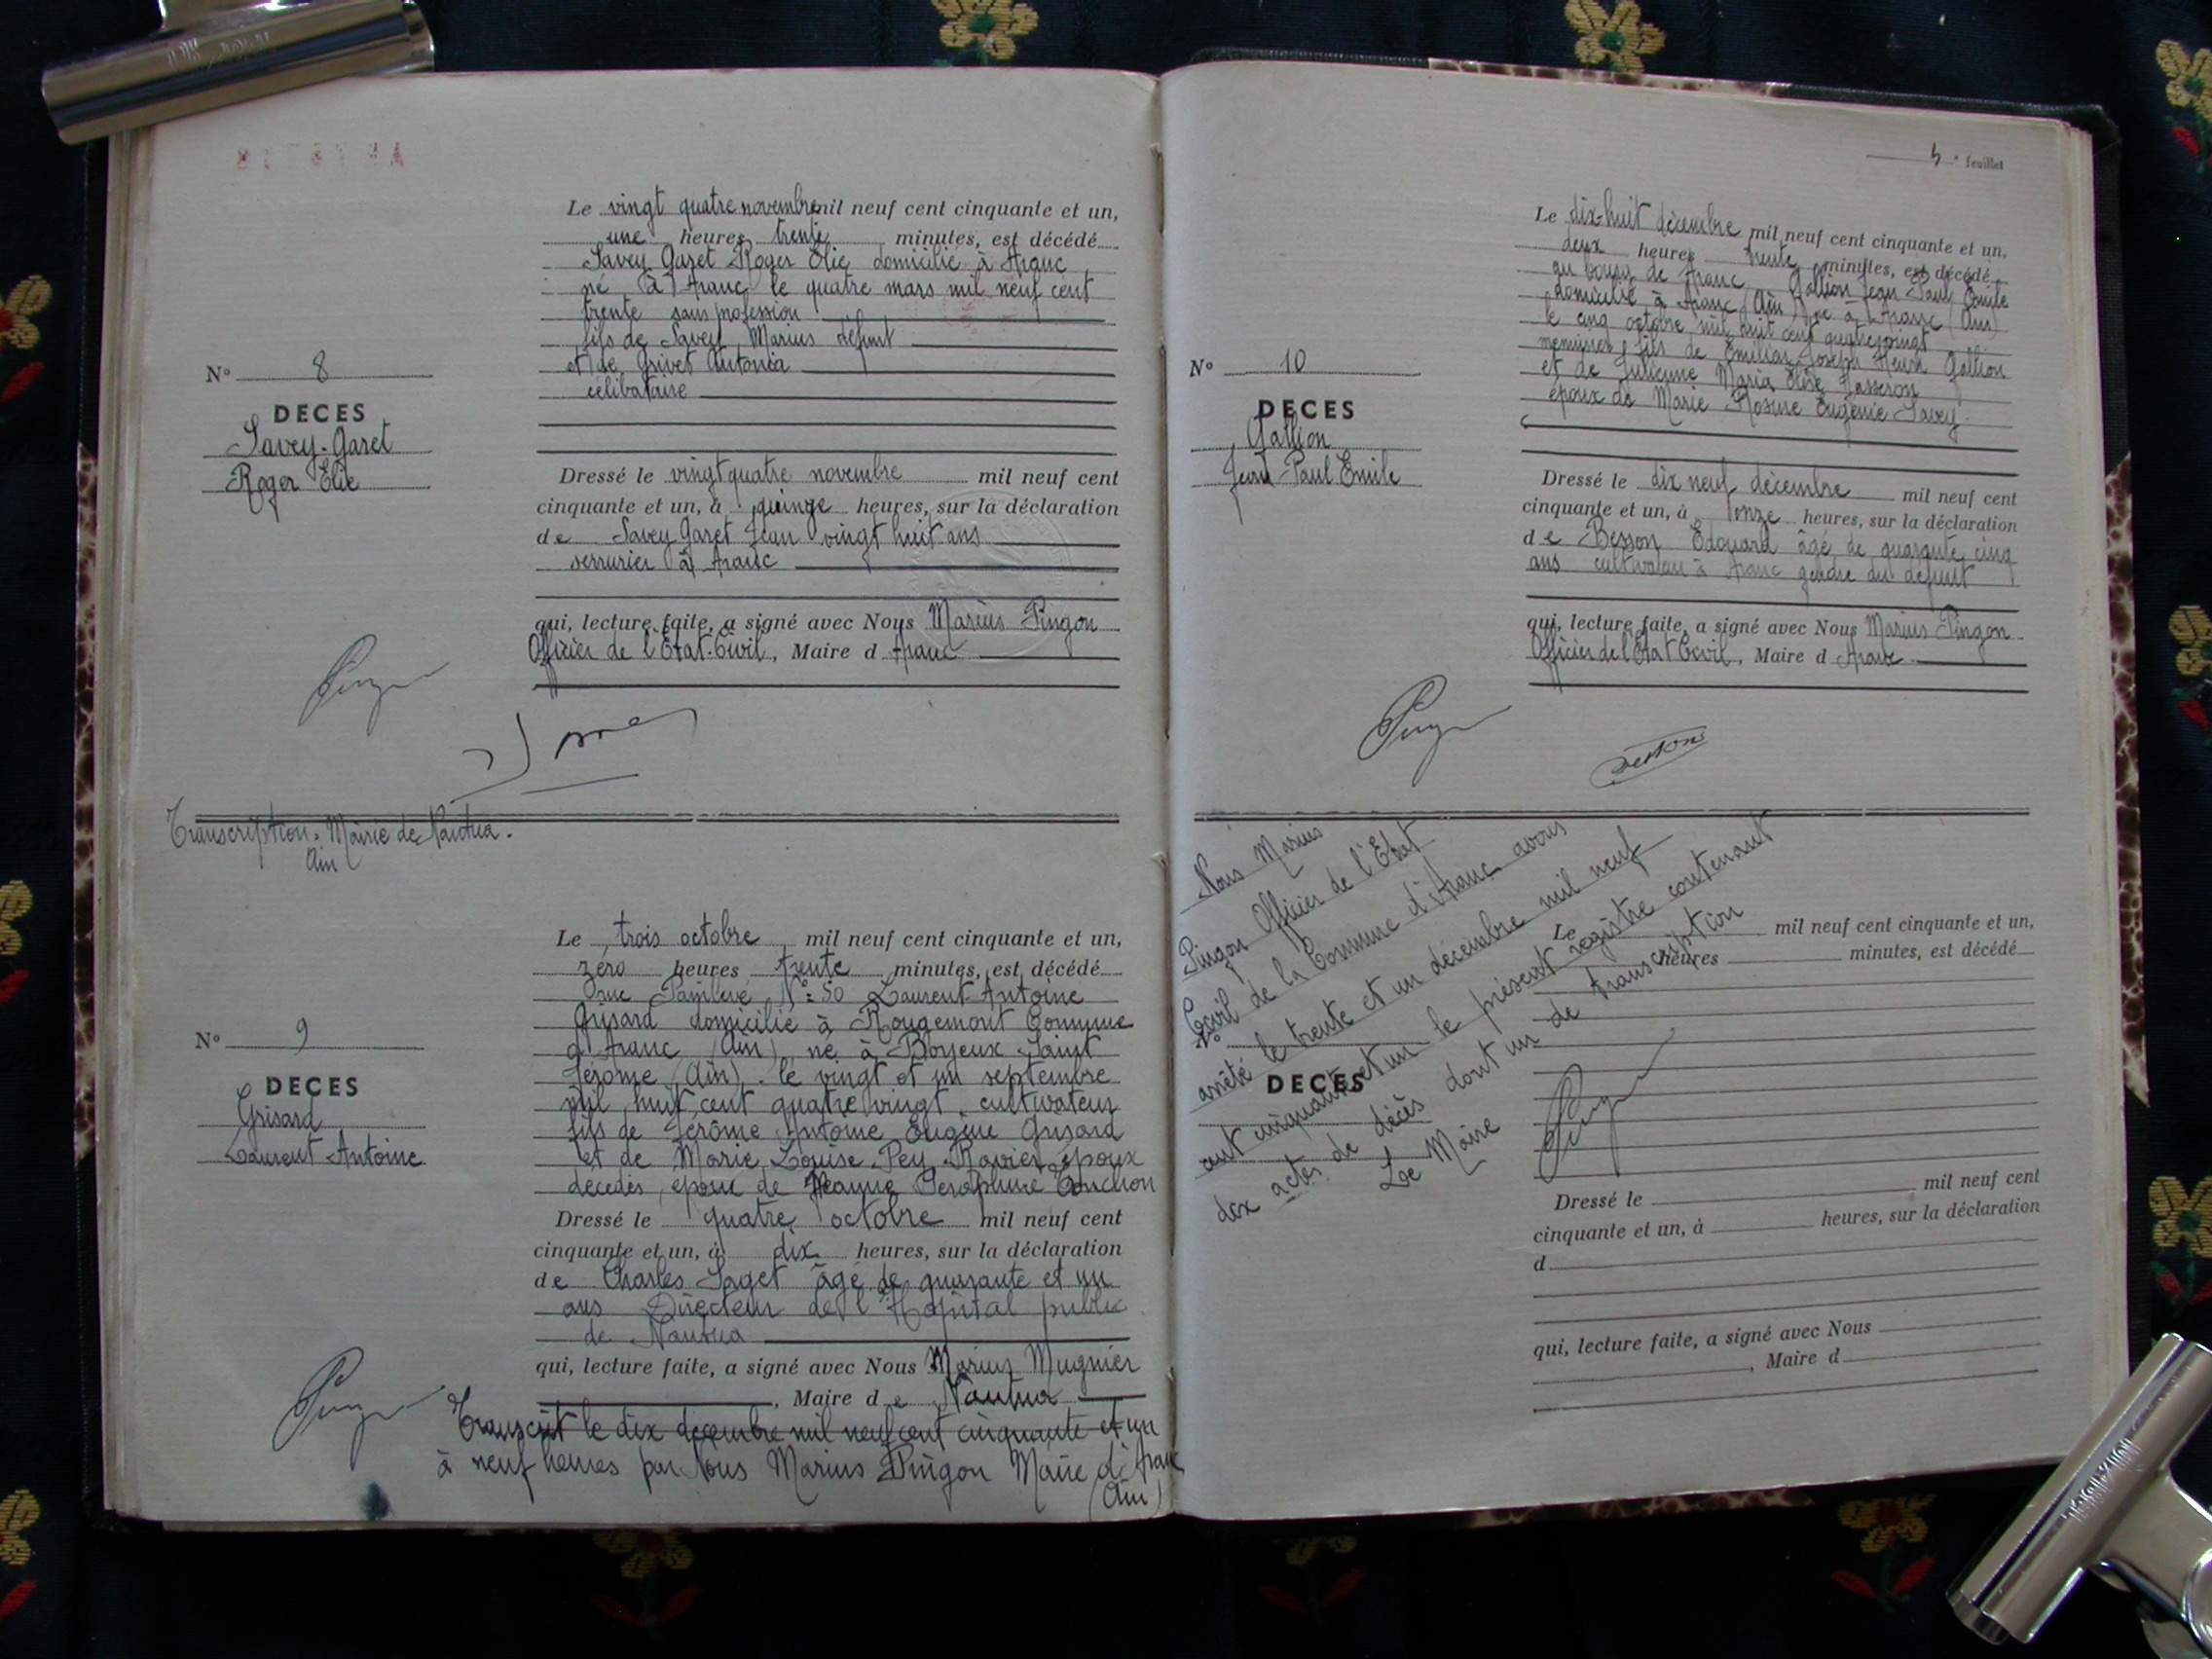 Le vingt quatre novembre mil neuf cent cinquante et un,
une heures trente minutes, est décédé
Savey Garet Roger Elie domicilié à Aranc
né à Aranc le quatre mars mil neuf cent
trente sans profession
fils de Savey Marius défunt
et de Grivet Antonia
célibataire
N° 8
DECES
Savey-Garet
Roger Elie
Dressé le vingt quatre novembre mil neuf cent
cinquante et un, à quinze heures, sur la déclaration
de Savey Garet Jean vingt huit ans
serrurier à Aranc
qui, lecture faite, a signé avec Nous Marius Pingon
Officier de l'État-Civil, Maire d Aranc
Transcription. Mairie de Nantua.
Ain
Le trois octobre mil neuf cent cinquante et un,
zéro heures trente minutes, est décédé
rue Painlevé N° 50 Laurent Antoine
Grisard domicilié à Rougemont Commune
d'Aranc (Ain) né à Boyeux Saint
Jérôme (Ain) le vingt et un septembre
mil huit cent quatre vingt cultivateur
fils de Jérôme Antoine Eugène Grisard
et de Marie Louise Pey Ravier époux
décédés, époux de Jeanne Séraphine
N° 9
DECES
Grisard
Laurent Antoine
Dressé le quatre octobre mil neuf cent
cinquante et un, à dix heures, sur la déclaration
de Charles Saget âgé de quarante et un
ans Directeur de l'Hopital public
de Nantua
qui, lecture faite, a signé avec Nous Marius Mugnier
, Maire de Nantua
Transcrit le dix décembre mil neuf cent cinquante et un
à neuf heures par Nous Marius Pingon Maire d'Aranc
(Ain)
5e feuillet
Le dix-huit décembre mil neuf cent cinquante et un,
deux heures trente minutes, est décédé
au bourg de Aranc Gallion Jean Paul Emile
domicilié à Aranc (Ain) né à Aranc (Ain)
le cinq octobre mil huit cent quatre vingt
menuisier, fils de Emilien Joseph Henri Gallion
et de Julienne Maria Elise Masseron
époux de Marie Rosine Eugénie Savey.
N° 10
DECES
Gallion
Jean-Paul Emile
Dressé le dix neuf décembre mil neuf cent
cinquante et un, à onze heures, sur la déclaration
de Besson Edouard âgé de quarante cinq
ans cultivateur à Aranc gendre du défunt
qui, lecture faite, a signé avec Nous Marius Pingon
Officier de l'État Civil, Maire d Aranc
Nous Marius
Pingon Officier de l'Etat
Civil de la Commune d'Aranc avons
arrêté le trente et un décembre mil neuf
cent cinquante et un le présent registre contenant
dix actes de décès dont un de transcription
Le Maire
Le mil neuf cent cinquante et un,
heures minutes, est décédé
N°
DECES
Dressé le mil neuf cent
cinquante et un, à heures, sur la déclaration
d
qui, lecture faite, a signé avec Nous
, Maire d